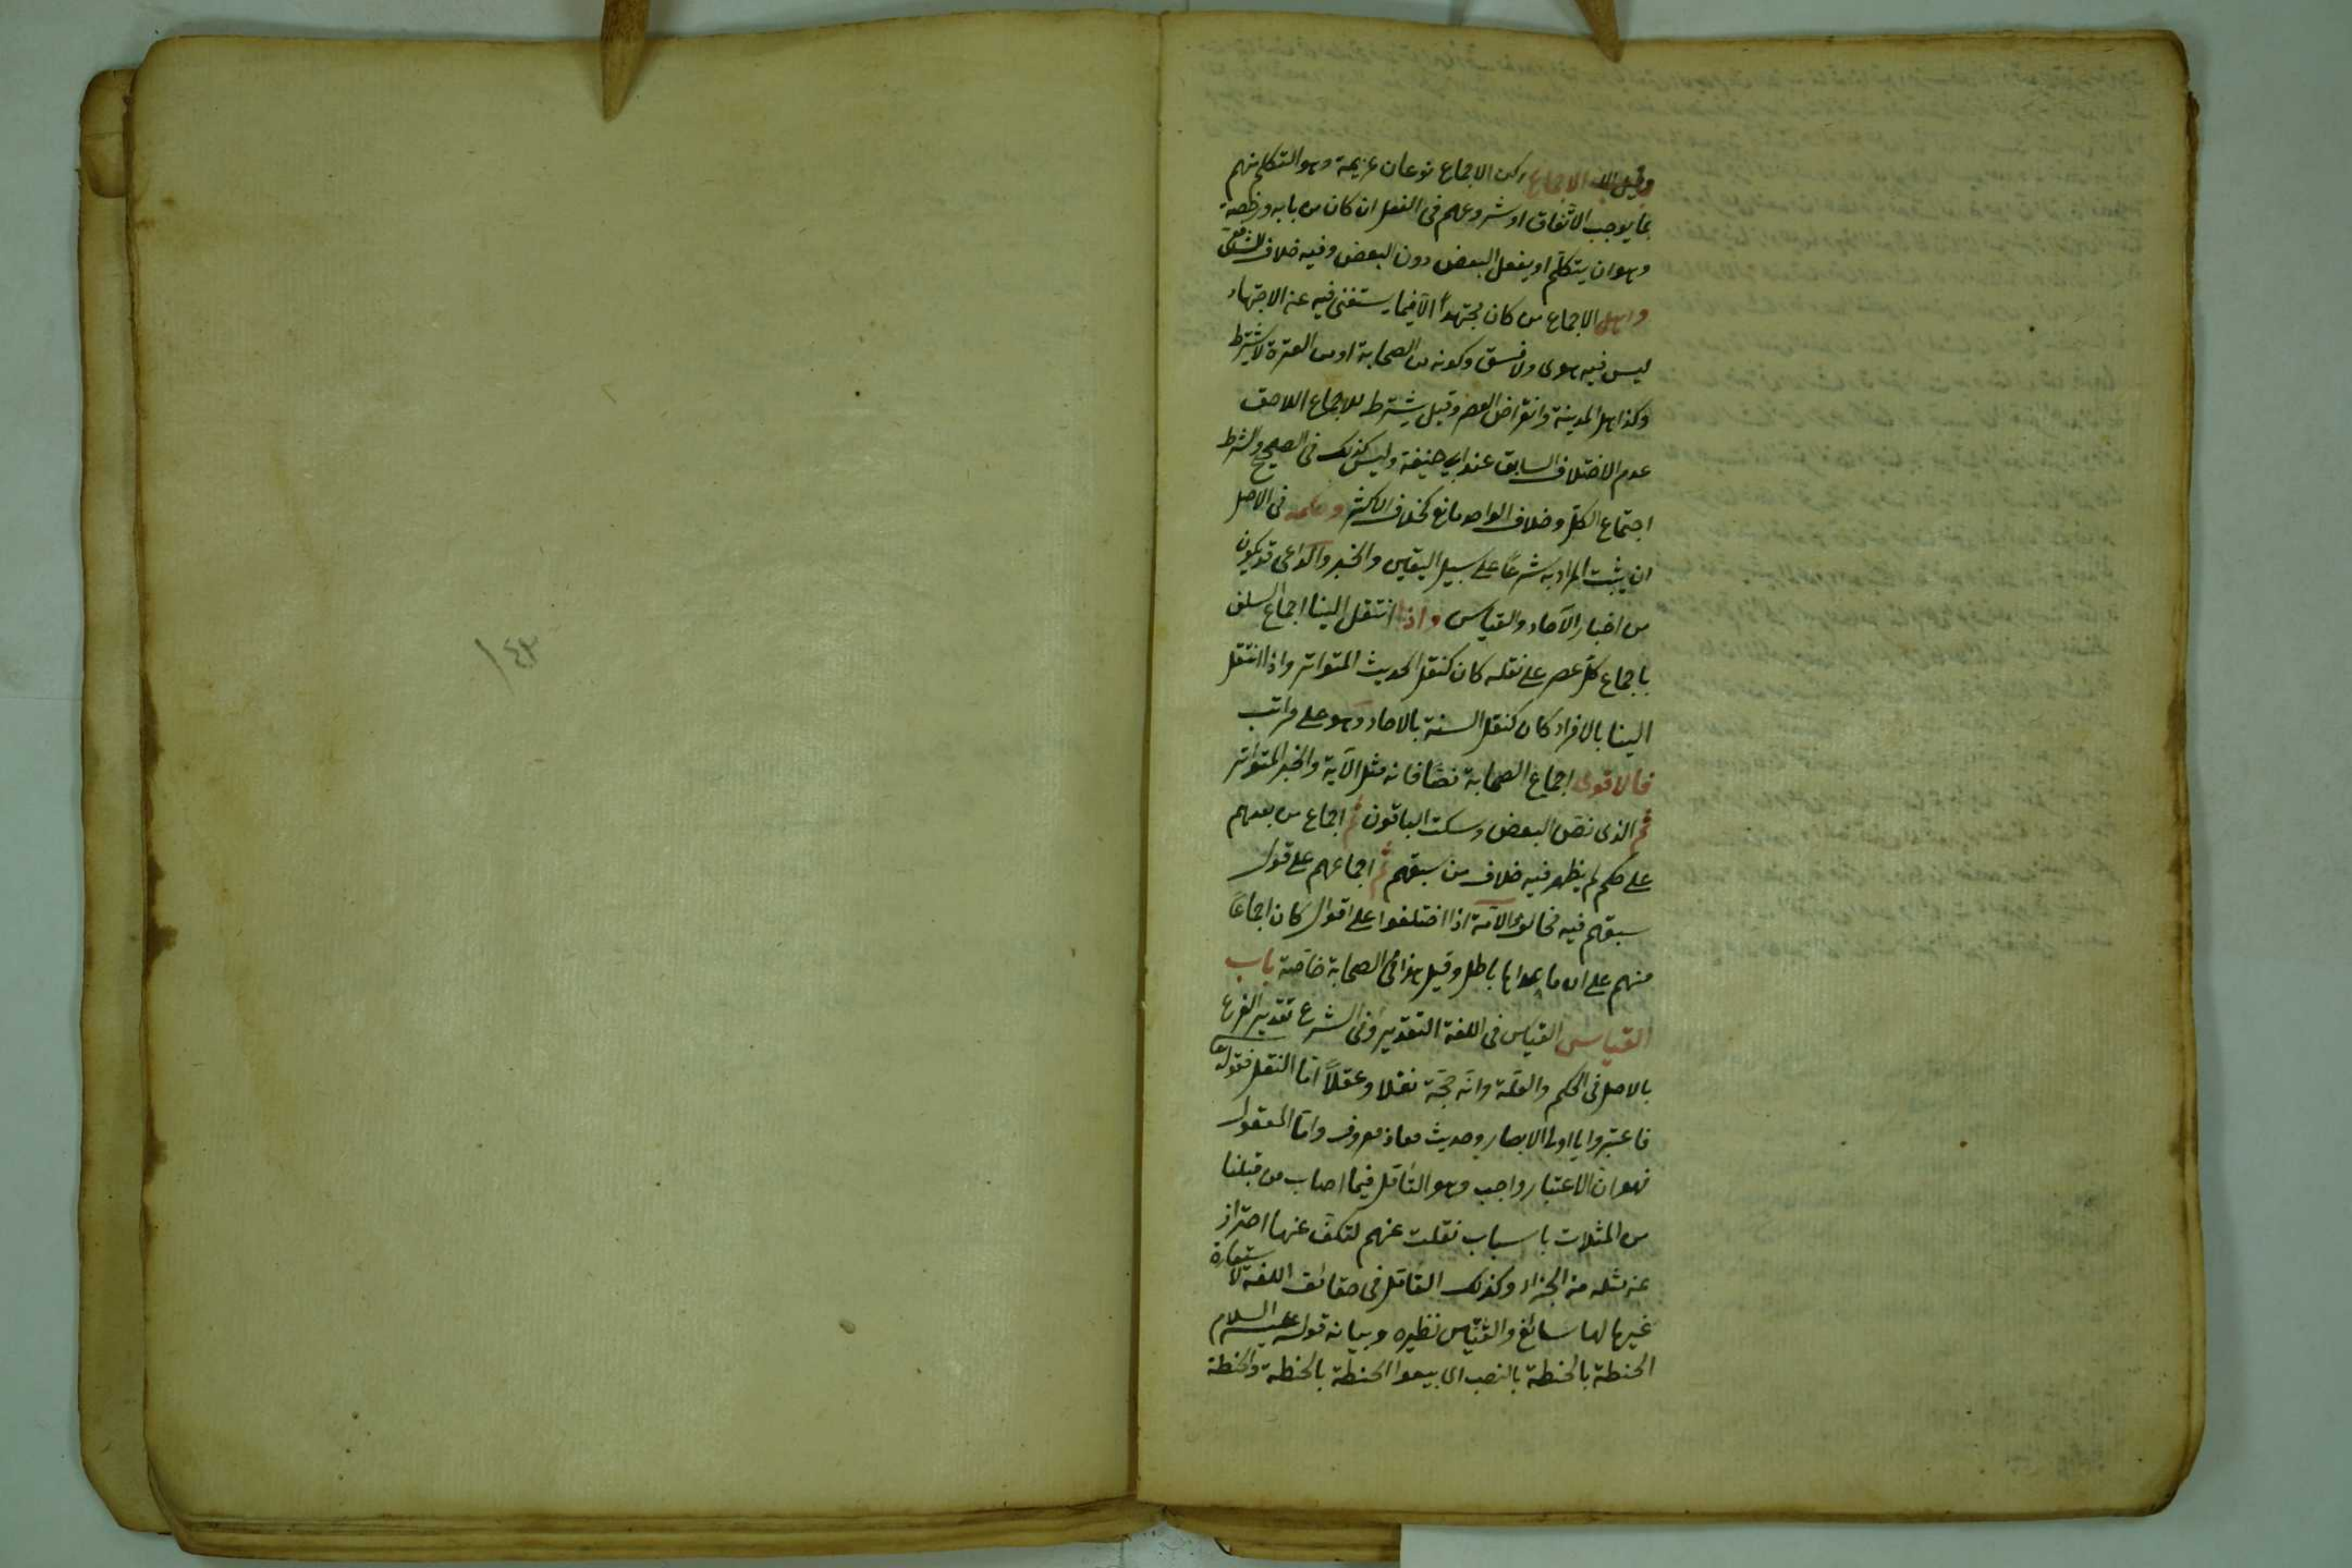 باب الاجماع ركن الاجماع نوعان عزيمة وهو التكلم منهم
بما يوجب الاتفاق او شروعهم فى الفعل ان كان من بابه ورخصة
وهو ان يتكلم او يفعل البعض دون البعض وفيه خلاف الشافعى
واهل الاجماع من كان مجتهداً الا فيما يستغنى فيه عن الاجتهاد
ليس فيه هوى ولا فسق وكونه من الصحابة او من العترة لا يشترط
وكذا اهل المدينة وانقراض العصر وقيل يشترط للاجماع اللاحق
عدم الاختلاف السابق عند ابى حنيفة وليس كذلك فى الصحيح والشرط
اجتماع الكل وخلاف الواحد مانع كخلاف الاكثر وحكمه فى الاصل
ان يثبت المراد به شرعاً على سبيل اليقين والخبر والداعى قد يكون
من اخبار الآحاد والقياس واذا انتقل الينا اجماع السلف
باجماع كل عصر على نقله كان كنقل الحديث المتواتر واذا انتقل
الينا بالافراد كان كنقل السنة بالآحاد وهو على مراتب
فالاقوى اجماع الصحابة نصًا فانه مثل الآية والخبر المتواتر
ثم الذى نص البعض وسكت الباقون ثم اجماع من بعدهم
على حكم لم يظهر فيه خلاف من سبقهم ثم اجماعهم على قول
سبقهم فيه مخالف والامة اذا اختلفوا على اقوال كان اجماعاً
منهم على ان ما عداها باطل وقيل هذا فى الصحابة خاصة باب
القياس القياس فى اللغة التقدير وفى الشرع تقدير الفرع
بالاصل فى الحكم والعلة وانه حجة نقلا وعقلاً اما النقل فقوله تعا
فاعتبروا يا اولى الابصار وحديث معاذ معروف واما المعقول
فهو ان الاعتبار واجب وهو التأمل فيما اصاب من قبلنا
من المثلات باسباب نقلت عنهم لتكف عنها احتراز
عن مثله من الجزاء وكذلك التأمل فى حقائق اللغة لاستعارة
غيرها لها سائغ والقياس نظيره وبيانه قوله عليه السلام
الحنطة بالحنطة بالنصب اى بيعوا الحنطة بالحنطة والحنطة
١٤٣